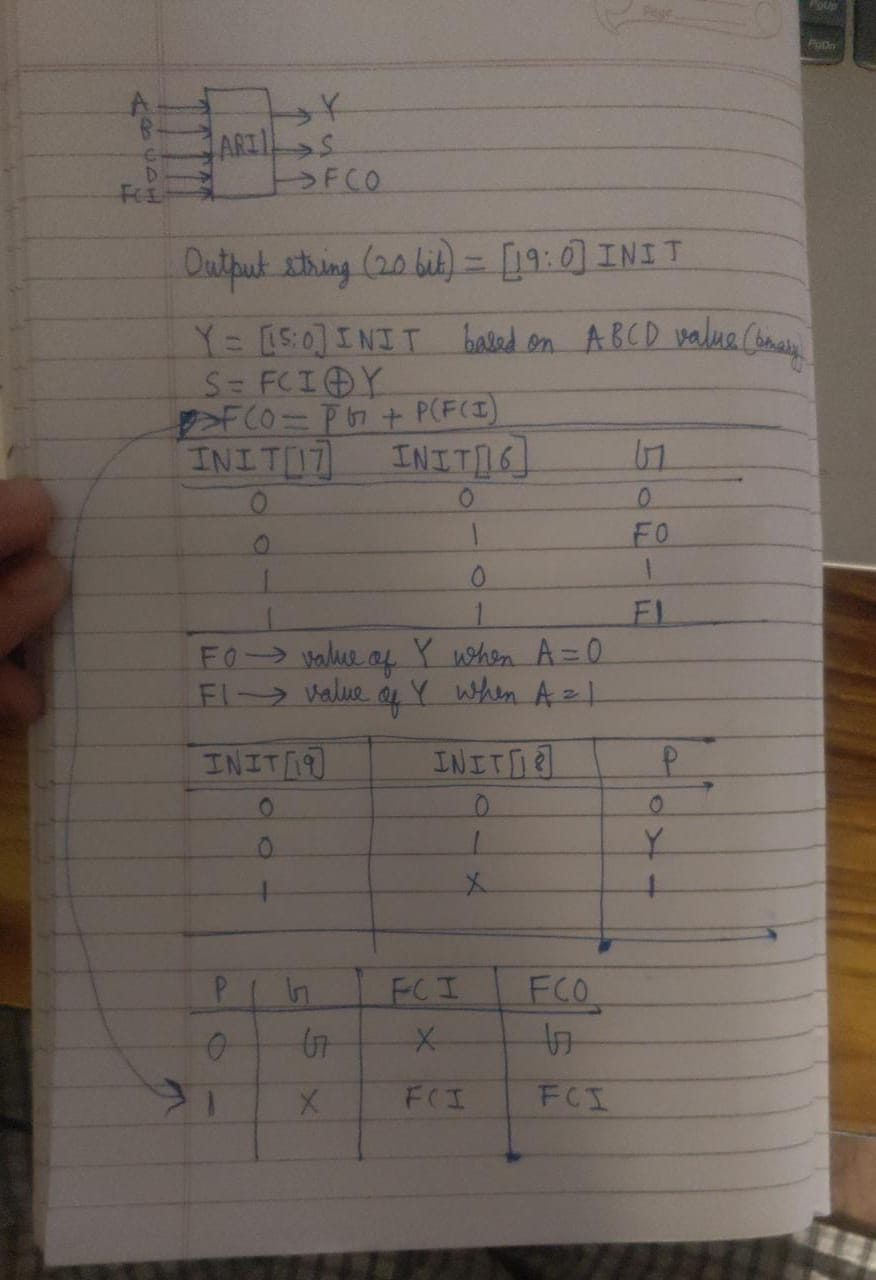 Page
PgUp
PgDn
A
B
C
D
FCI
ARI1
Y
S
FCO
Output string (20 bit) = [19:0] INIT
Y = [15:0] INIT based on ABCD value (binary)
S = FCI ⊕ Y
FCO = P̅G + P(FCI)
INIT[17] INIT[16] G
0 0 0
0 1 F0
1 0 1
1 1 F1
F0 → value of Y when A = 0
F1 → value of Y when A = 1
INIT[19] INIT[18] P
0 0 0
0 1 Y
1 X 1
P G FCI FCO
0 G X G
1 X FCI FCI